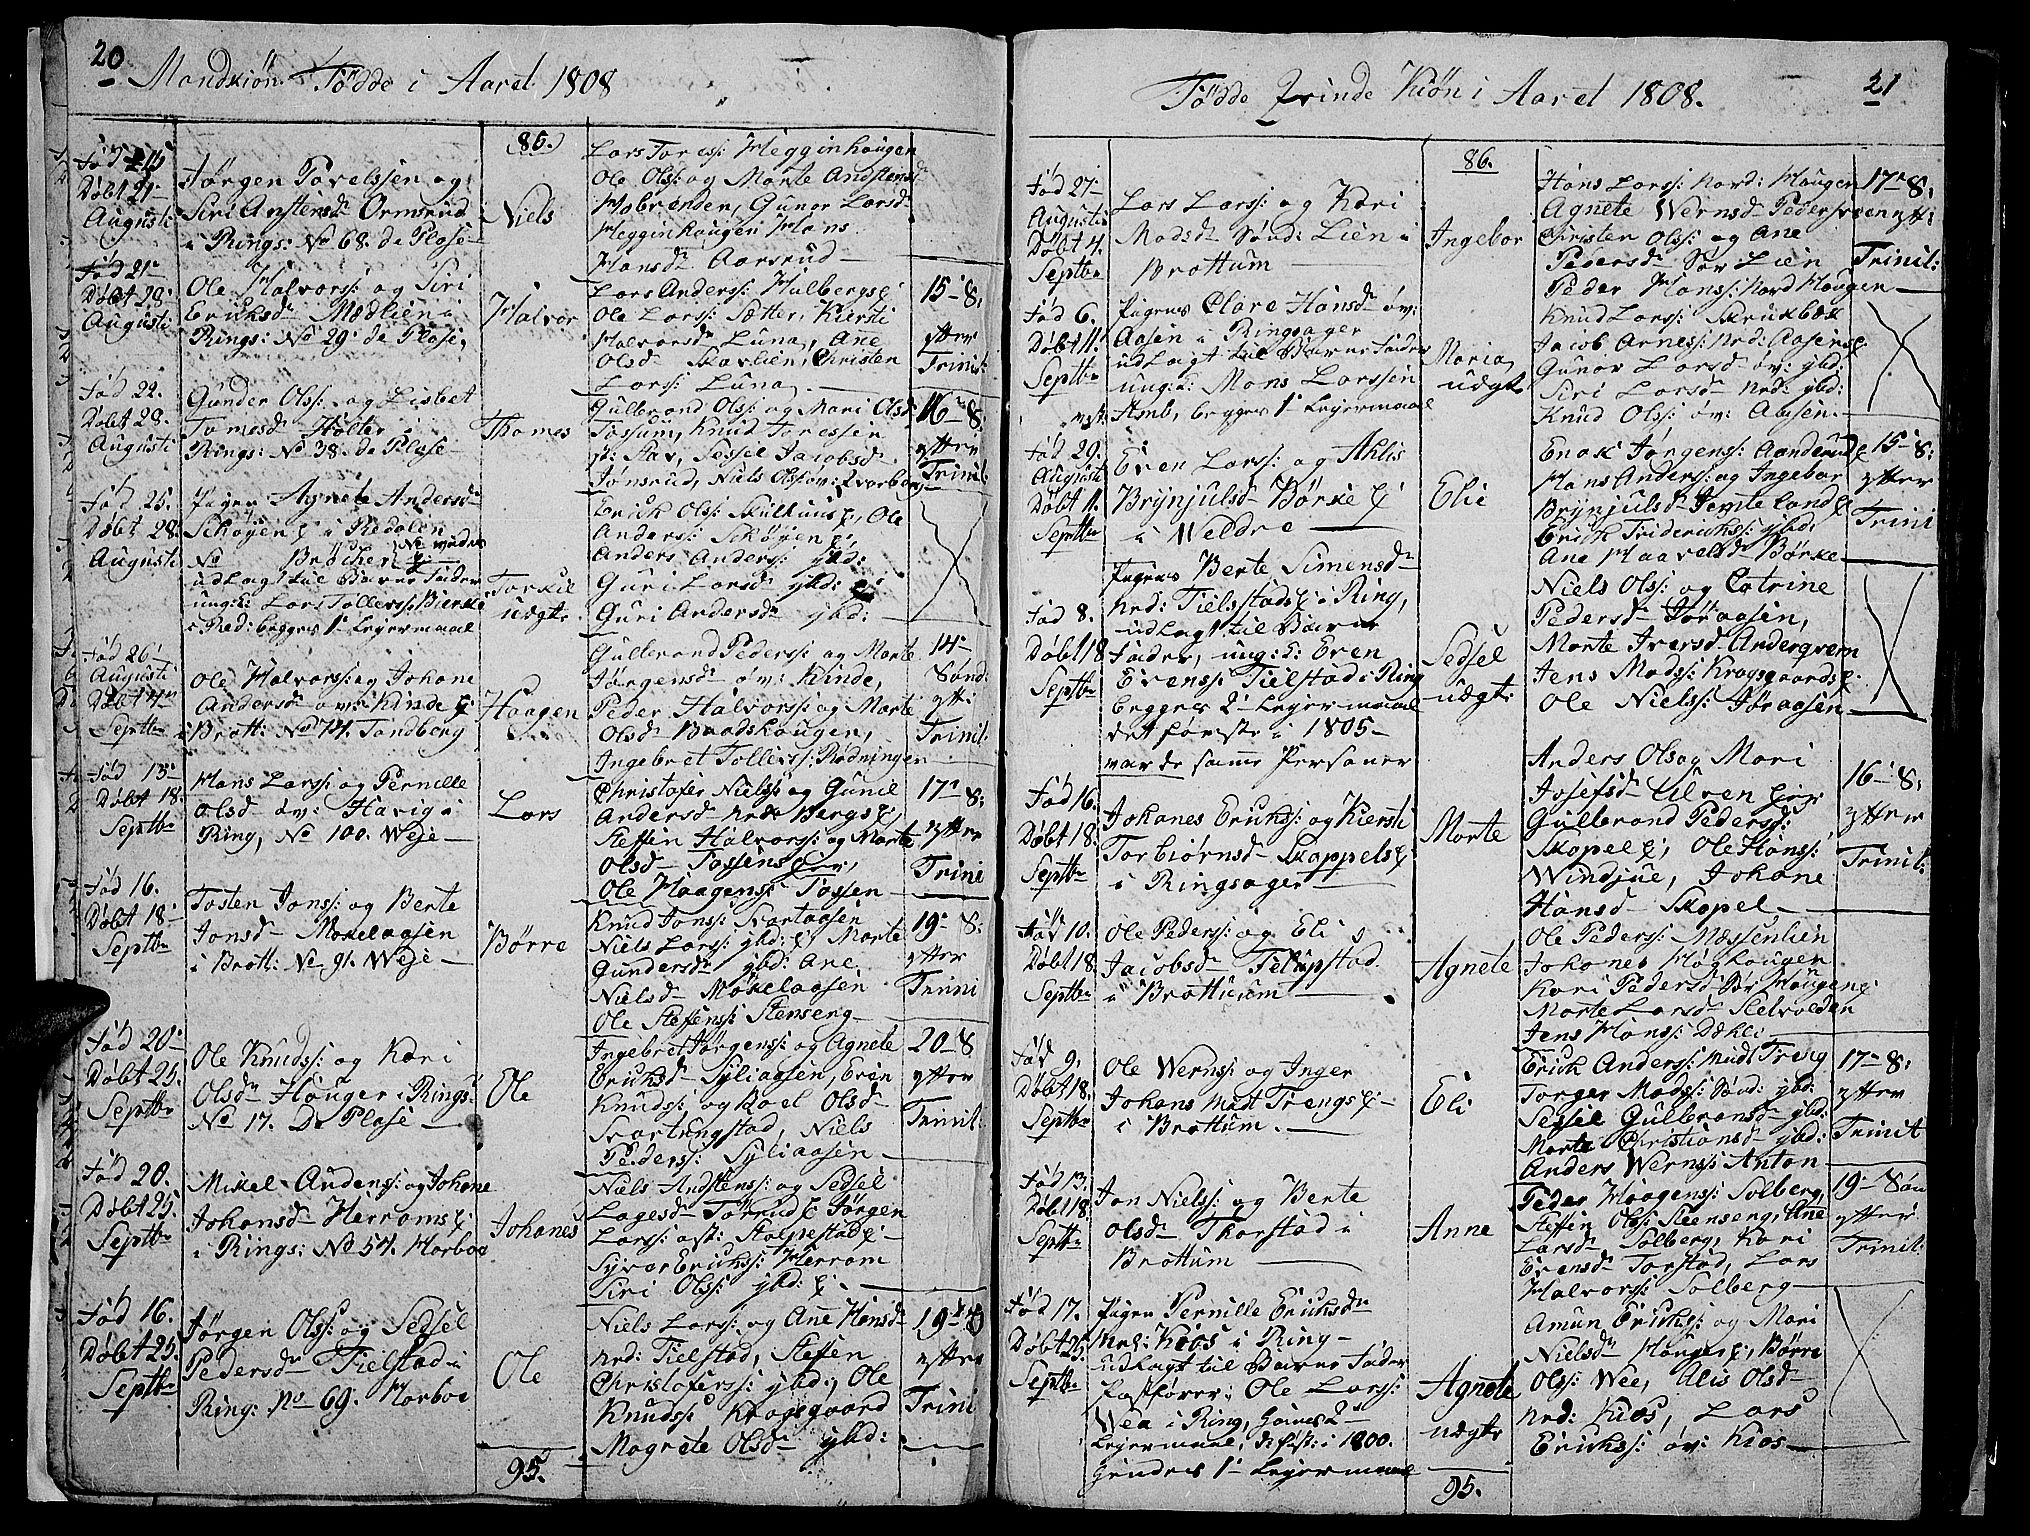 20
Mandkiön Födde i Aaret 1808
Föd 15
Döbt 21
Augusti
Jörgen Povelssen og
Siri Anstensd Ormsrud
i Rings: No 68. de Plase
86.
Niels
Lars Toress: Hegginhaugen
Ole Olss: og Marte Andstensd
Mobrenden, Gunor Larsd
Hegginhaugen Hans
Hansd Aarsrud
Föd 21
Döbt 28
Augusti
Ole Halvorss: og Siri
Ericksd Mælien i
Rings: No 29: de Plase,
Halvor
Lars Anderss: Hulbergs
Ole Larss: Sætter, Kiersti
Halvorsd Luna, Ane
Olsd Skavlien, Christen
Larss: Luna
15 8:
ytter
Trinit:
Föd 22.
Döbt 28.
Augusti
Gunder Olss: og Lisbet
Tomesd Holter i
Rings: No 38. de Plase
Thomas
Gulbrand Olss: og Mari Olsd
Fossum, Knud Toressen
Sessel Jacobsd
Jönsrud, Niels Olss öv: Kvarberg
16 8
ytter
Trinit:
Föd 25.
Döbt 28.
Augusti
Pigen Agnete Andersd
Schöyen i Redalen
No Bröcher
udlagt til Barne Fader
ung: K: Lars Tollerss: Bierke
i Red: begges 1 Leyermaal
Torkil
uægte
Erick Olss: Skulhuus, Ole
Anderss: Schöyen,
Anders Anderss: ybd:
Guri Larsd ybd:
Guri Andersd ybd:
Föd 26
Augusti
Döbt 4
Septbr
Ole Halvorss: og Johane
Andersd öv: Kinde
i Brött: No 74. Tandberg
Haagen
Gulbrand Pederss: og Marte
Jörgensd öv: Kinde,
Peder Halvorss: og Marte
Olsd Bradshaugen,
Ingebret Tollerss: Rödningen
14
Sönd
ytt:
Trinit:
Föd 15
Döbt 18.
Septbr
Hans Larss: og Pernille
Olsd öv: Havig i
Ring, No 100. Weje
Lars
Christofer Nielss: og Gunil
Andersd nedr Bergs,
Steffen Halvorss: og Marte
Olsd Fossens
Ole Haagenss: Fossen
17 8:
ytter
Trini
Föd 16.
Döbt 18
Septbr
Tosten Jonss: og Berte
Jonsd Moxelaasen
i Brött: No 91. Weje
Börre
Knud Jonss: Svartaasen
Niels Larss: ybd: Marte
Gundersd ybd: Ane
Nielsd Moxelaasen
Ole Steffenss: Stenseng
19 8:
ytter
Trini
Föd 20
Döbt 25.
Septbr
Ole Knudss: og Kari
Olsd Hauger i Rings:
No 17. De Plase
Ole
Ingebret Jörgenss: og Agnete
Ericksd Syliaasen, Even
Knudss: og Boel Olsd
Svartungstad, Niels
Pederss: Syliaasen
20 8
ytter
Trinit:
Föd 20.
Döbt 25.
Septbr
Mikel Anderss: og Johane
Johansd Herroms
i Rings: No 54. Horboe
Johanes
Niels Andstenss: og Sedsel
Lagesd Torrud Jörgen
Larss: ost: Stolpestad
Syvor Ericks: Herrom
Siri Olss: ybd:
Föd 16.
Döbt 25.
Septbr
Jörgen Olss: og Sedsel
Pedersd Tielstad i
Ring: No 69. Horboe
Ole
95.
Niels Larss: og Ane Hansd
nrd: Tielstad, Steffen
Christoferss: ybd:, Ole
Knudss: Kragsgaard
Magrete Olsd ybd:
19 8
ytter
Trini
Födde Qvinde Kiön i Aaret 1808.
21
Föd 27
Augusti
Döbt 4.
Septbr
Lars Larss: og Kari
Madsd Sönd: Lien i
Brottum
86.
Ingebor
Hans Larss: Nord: Haugen
Agnete Wernsd Pedersveen
Christen Olss: og Ane
Pedersd Sör Lien
Peder Hanss: Nord Haugen
17 8:
ytt:
Trinit:
Föd 6.
Döbt 11.
Septbr
Pigens Clare Hansd öv:
Aasen i Ringsager
udlagt til Barne Fader
ung: K: Mons Larssen
Amb, begges 1 Leyermaal
Maria
uægt
Knud Larss: Skrukbæk
Jacob Arness: Nrd: Aasens
Gunor Larsd öv: ybd:
Siri Larsd nrd: ybd:
Knud Olss: öv: Aasen.
Föd 29.
Augusti
Döbt 11.
Septbr
Even Larss: og Ahlis
Brynjulsd Börke
i Weldre
Elie
Enok Jörgenss: Aanderud
Hans Anderss: og Ingebor
Brynjulsd Jemtland
Erick Fridericks: ybd:
Ane Haavelsd Börke
15 8:
ytter
Trini
Föd 8.
Döbt 18
Septbr
Pigens Berte Simensd
nrd: Tielstads i Ring,
udlagt til Barne
Fader, ung: K: Even
Evenss: Tielstad i Ring
begges 2 Leyermaal
det förste i 1805
var de samme Personer
Sedsel
uægt:
Niels Olss: og Catrine
Pedersd Höraasen,
Marte Iversd Anderqvern
Jens Madss: Kragsgaards
Ole Nielss: Höraasen
Föd 16.
Döbt 18.
Septbr
Johanes Ericks: og Kiersti
Torbiörnsd Skappels
i Ringsager
Marte
Anders Ols og Mari
Josefsd Ulven
Gulbrand Pederss:
Skapel, Ole Hanss:
Windjue, Johane
Hansd Skapel
16 8:
ytter
Trinit:
Föd 10.
Döbt 18
Septbr
Ole Pederss: og Eli
Jacobsd Felipstad
i Brottum
Agnete
Ole Pederss: Mæssenlien
Johanes Höghaugen
Kari Pedersd Sör Haugen
Marte Larsd Sletvolden
Jens Hanss: Dækli
Föd 9,
Döbt 18,
Septbr
Ole Wernss: og Inger
Johans Mdt Trengs
i Brottum.
Eli
Erick Anderss: Mudt Treng
Torger Madss: Sönd: ybd:
Sessel Gulbransd ybd:
Marte Christiansd ybd:
Anders Wernss: Anton
17 8:
ytter
Trinit
Föd 13.
Döbt 18.
Septbr
Jon Nielss: og Berte
Olsd Thorstad i
Brottum
Anne
Peder Haagenss: Solberg,
Steffen Olss: Steenseng, Ane
Larsd Solberg, Kari
Evensd Torstad, Lars
Halvorss: Solberg
19 Sön
ytter
Trinit:
Föd 17.
Döbt 25
Septbr
Pigen Pernille Ericksd
nrd: Kios i Ring
udlagt til Barne Fader
Ole Larss:
Wea i Ring, hans 2
Leyermaal, de förste i 1800.
hendes 1 Leyermaal
Agnete
uægte
95.
Amun Ericks: og Mari
Nielsd Hauger, Börre
Olss: Wee, Alis Olsd
nrd: Kios, Lars
Ericks: öv: Kios